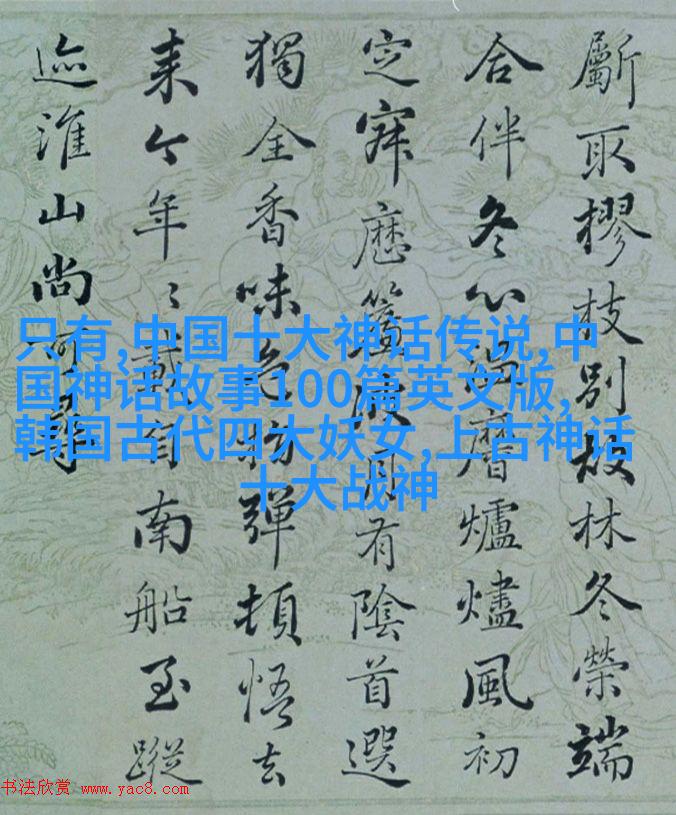 斸取樛枝別故林冬榮端
合伴冬心溫麿爐燼風初
定寂歷簷月有陰首選
獨全香味色彈頓悟去
来今年〻載自南船至蹤
迹淮山尚可尋
只有,中国十大神话传说,中
国神话故事100篇英文版,
韩国古代四大妖女,上古神话
十大战神
书法欣赏 www.yac8.com